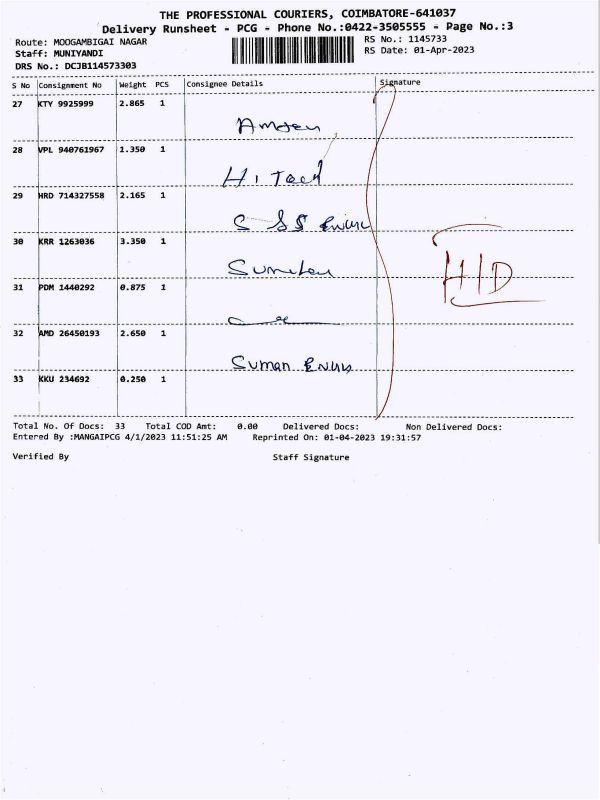 THE PROFESSIONAL COURIERS, COIMBATORE-641037
Delivery Runsheet - PCG - Phone No.:0422-3505555 - Page No.:3
Route: MOOGAMBIGAI NAGAR RS No.: 1145733
Staff: MUNIYANDI RS Date: 01-Apr-2023
DRS No.: DCJB114573303
S No Consignment No Weight PCS Consignee Details Signature
27 KTY 9925999 2.865 1
28 VPL 940761967 1.350 1
Hi Tech
29 HRD 714327558 2.165 1
S
30 KRR 1263036 3.350 1
H/D
31 PDM 1440292 0.875 1
32 AMD 26450193 2.650 1
Suman
33 KKU 234692 0.250 1
Total No. Of Docs: 33 Total COD Amt: 0.00 Delivered Docs: Non Delivered Docs:
Entered By :MANGAIPCG 4/1/2023 11:51:25 AM Reprinted On: 01-04-2023 19:31:57
Verified By Staff Signature